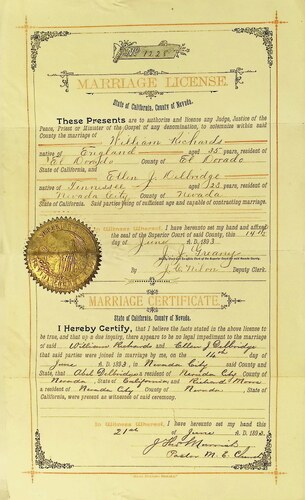 MARRIAGE LICENSE
State of California, County of Nevada.
These Presents are to authorize and license any Judge, Justice of the
Peace, Priest or Minister of the Gospel of any denomination, to solemnize within said
County the marriage of William Richards
native of England aged 35 years, resident of
El Dorado County of El Dorado
State of California, and Ellen J. Delbridge
native of Tennessee aged years, resident of
Nevada City County of Nevada
State of California. Said parties being of sufficient age and capable of contracting marriage.
In Witness Whereof, I have hereunto set my hand and affixed
the seal of the Superior Court of said County, this 14th
day of June A. D. 1893
J. L. Greany
Deputy Clerk.
MARRIAGE CERTIFICATE
State of California, County of Nevada.
I Hereby Certify, that I believe the facts stated in the above license
to be true, and that upon due inquiry, there appears to be no legal impediment to the marriage
of said William Richards and Ellen J Delbridge
that said parties were joined in marriage by me, on the day of
June A. D. 1893 in Nevada City said County and
State; that Abel Delbridge a resident of Nevada City County of
Nevada, State of California and Richard
a resident of Nevada City County of Nevada, State of
California, were present as witnesses of said ceremony.
In Witness Whereof, I have hereunto set my hand this
21st day of June A. D. 1893.
Pastor M. E. Church